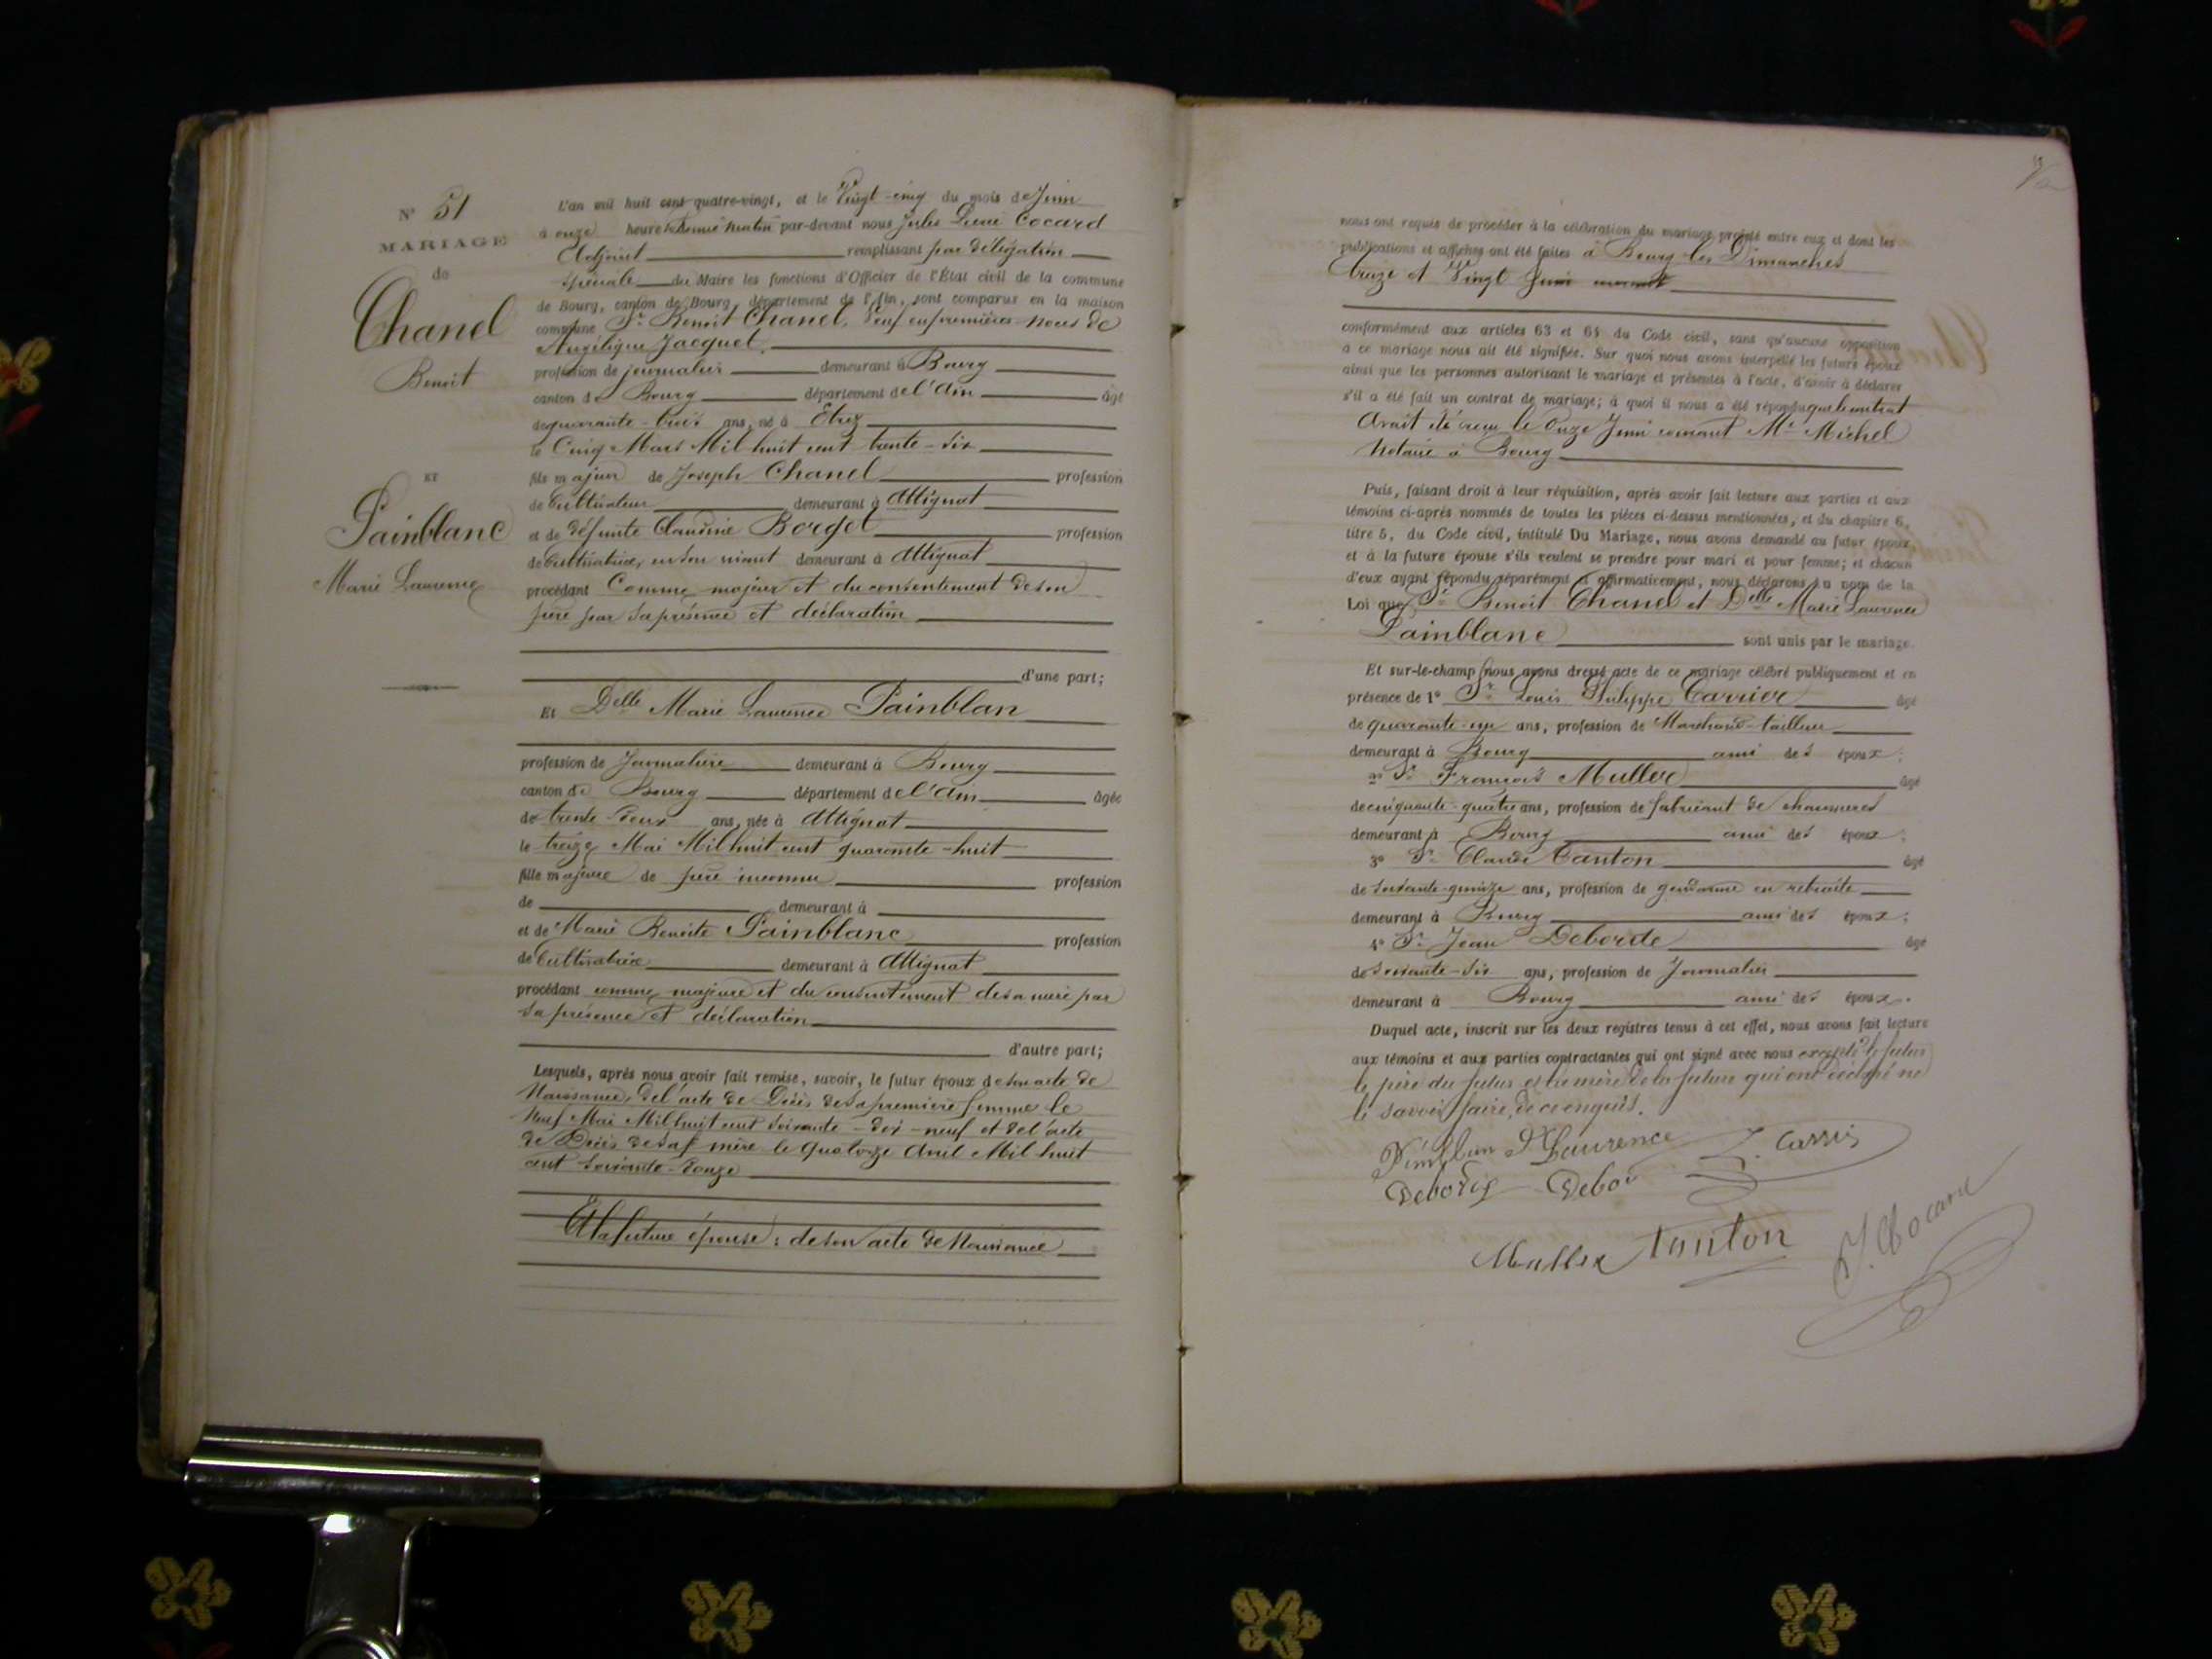 N° 51
MARIAGE
de
Chanel
Benoit
ET
Painblanc
Marie Laurence
L'an mil huit cent quatre-vingt, et le Vingt-cinq du mois de Juin
à onze heure & demie matin par-devant nous Jules Cocard
Adjoint remplissant par délégation
spéciale du Maire les fonctions d'Officier de l'État civil de la commune
de Bourg, canton de Bourg, département de l'Ain, sont comparus en la maison
commune Sr Benoit Chanel, Veuf en premières noces de
Angélique Jacquet,
profession de journalier demeurant à Bourg
canton de Bourg département de l'Ain âgé
de quarante-trois ans, né à Etrez
le Cinq Mars Mil huit cent trente-six
fils majeur de Joseph Chanel profession
de Cultivateur demeurant à Attignat
et de défunte Claudine Borget profession
de Cultivatrice, en son vivant demeurant à Attignat
procédant Comme majeur et du consentement de son
père par sa présence et déclaration
d'une part;
Et Delle Marie Laurence Painblan
profession de Journalière demeurant à Bourg
canton de Bourg département de l'Ain âgée
de trente-deux ans, née à Attignat
le treize Mai Mil huit cent quarante-huit
fille majeure de père inconnu profession
de demeurant à
et de Marie Benoite Painblanc profession
de Cultivatrice demeurant à Attignat
procédant comme majeure et du consentement de sa mère par
sa présence et déclaration
d'autre part;
Lesquels, après nous avoir fait remise, savoir, le futur époux de son acte de
Naissance, de l'acte de Décès de sa première femme le
Neuf Mai Mil huit cent soixante-dix-neuf et de l'acte
de Décès de sa mère le quatorze Avril Mil huit
cent soixante-douze
Et la future épouse: de son acte de Naissance
nous ont requis de procéder à la célébration du mariage projeté entre eux et dont les
publications et affiches ont été faites à Bourg les Dimanches
treize et Vingt Juin courant
conformément aux articles 63 et 64 du Code civil, sans qu'aucune opposition
à ce mariage nous ait été signifiée. Sur quoi nous avons interpellé les futurs époux
ainsi que les personnes autorisant le mariage et présentes à l'acte, d'avoir à déclarer
s'il a été fait un contrat de mariage; à quoi il nous a été répondu que le contrat
Avait été reçu le Onze Juin courant Me Michel
Notaire à Bourg
Puis, faisant droit à leur réquisition, après avoir fait lecture aux parties et aux
témoins ci-après nommés de toutes les pièces ci-dessus mentionnées, et du chapitre 6,
titre 5, du Code civil, intitulé Du Mariage, nous avons demandé au futur époux
et à la future épouse s'ils veulent se prendre pour mari et pour femme; et chacun
d'eux ayant répondu séparément et affirmativement, nous déclarons au nom de la
Loi que Sr Benoit Chanel et Delle Marie Laurence
Painblanc sont unis par le mariage.
Et sur-le-champ nous avons dressé acte de ce mariage célébré publiquement et en
présence de 1° Sr Louis Philippe Carrier âgé
de quarante-un ans, profession de Marchand-tailleur
demeurant à Bourg ami des époux;
2° Sr François Muller âgé
de cinquante-quatre ans, profession de fabricant de chaussures
demeurant à Bourg ami des époux;
3° Sr Claude Tanton âgé
de soixante-quinze ans, profession de gendarme en retraite
demeurant à Bourg ami des époux;
4° Sr Jean Deborde âgé
de soixante-six ans, profession de Journalier
demeurant à Bourg ami des époux.
Duquel acte, inscrit sur les deux registres tenus à cet effet, nous avons fait lecture
aux témoins et aux parties contractantes qui ont signé avec nous excepté le futur
le père du futur et la mère de la future qui ont déclaré ne
le savoir faire, de ce enquis.
Laurence
Muller Tanton
J. Cocard